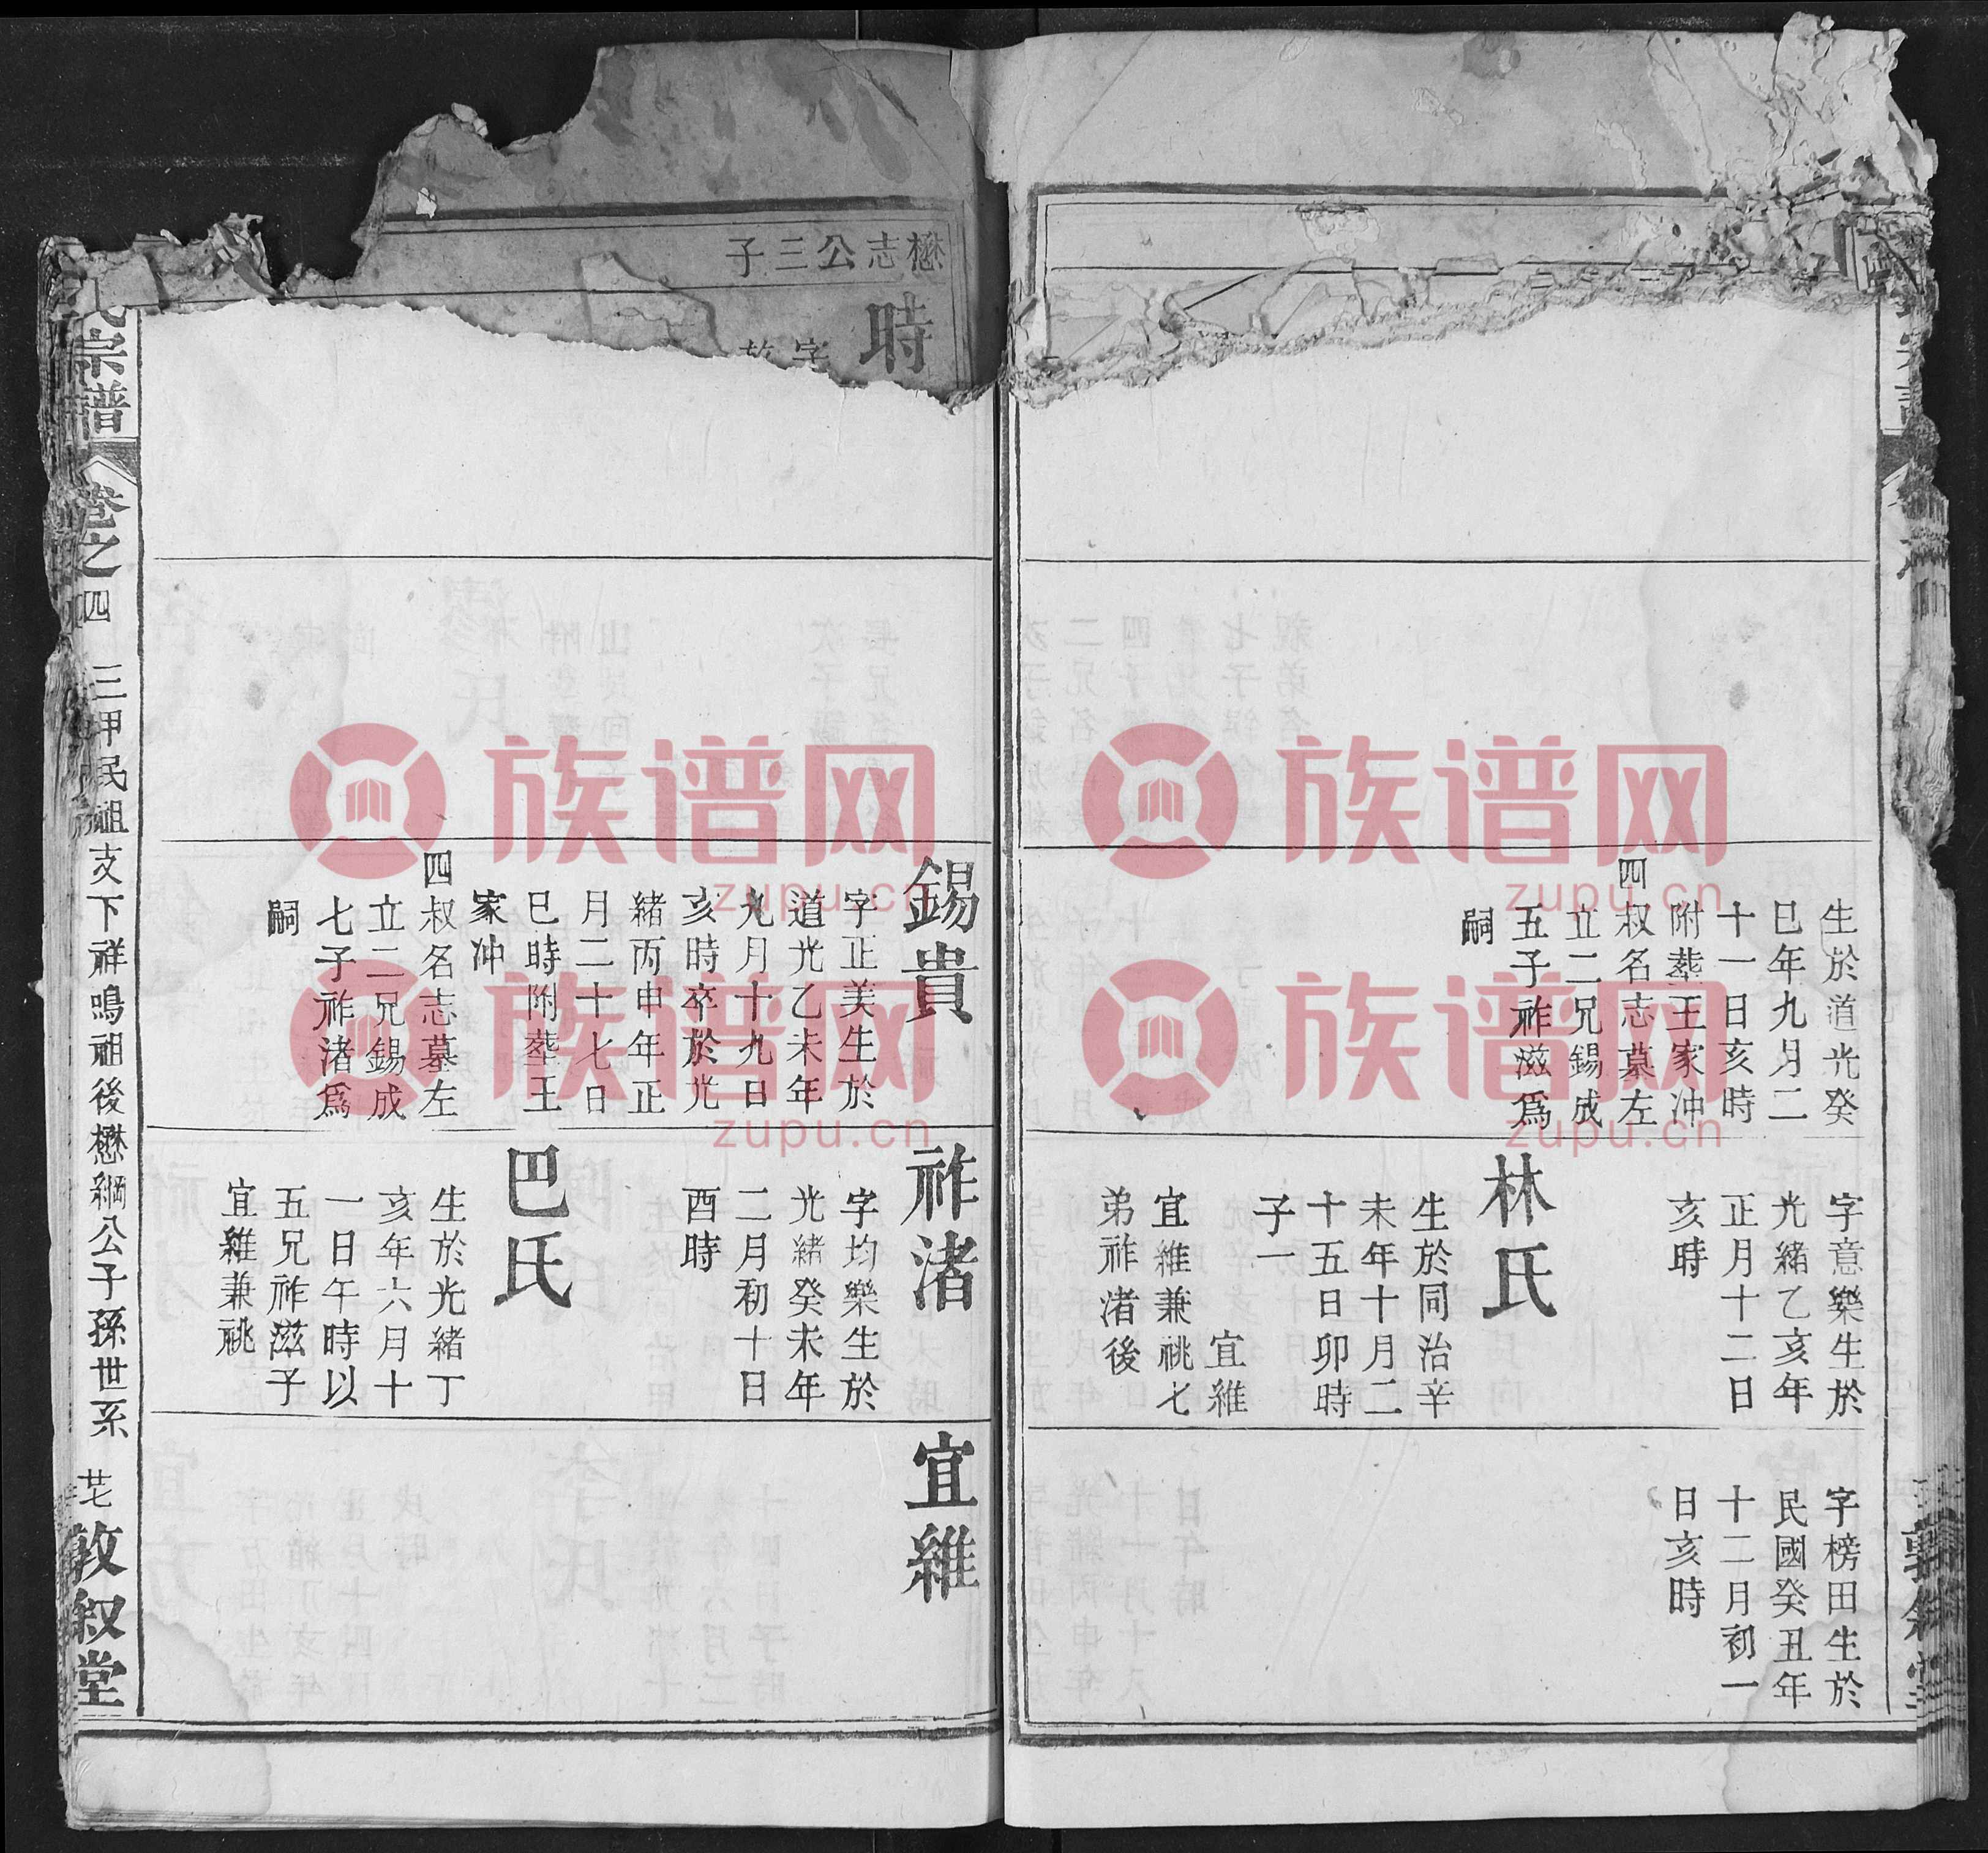 生於道光癸
巳年九月二
十一日亥時
附塟王家冲
四叔名志墓左
立二兄錫成
五子祚滋爲
嗣
字意樂生於
光緒乙亥年
正月十二日
亥時
林氏
生於同治辛
未年十月二
十五日卯時
子一
宜維
宜維兼祧七
弟祚渚後
字榜田生於
民國癸丑年
十二月初一
日亥時
懋志公三子
時
字
錫貴
字正美生於
道光乙未年
九月十九日
亥時卒於光
緒丙申年正
月二十七日
巳時附塟王
家冲
四叔名志墓左
立二兄錫成
七子祚渚爲
嗣
祚渚
字均樂生於
光緒癸未年
二月初十日
酉時
巴氏
生於光緒丁
亥年六月十
一日午時以
五兄祚滋子
宜維兼祧
宜維
氏宗譜
卷之四
三甲民祖支下祥鳴祖後懋綱公子孫世系
芼
敦叙堂
族谱网
zupu.cn
族谱网
zupu.cn
族谱网
zupu.cn
族谱网
zupu.cn